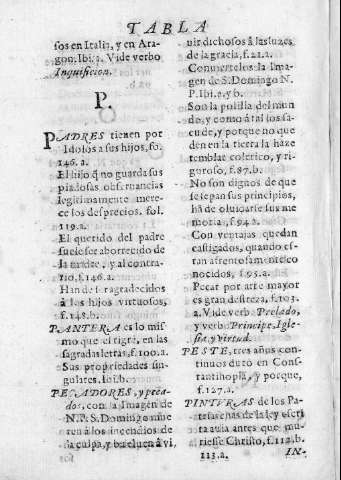 TABLA
sos en Italia, y en Ara-
gon. Ibi. a. Vide verbo
Inquisicion.
P.
PADRES tienen por
Idolos a sus hijos, fo.
146. a.
El hijo q̃ no guarda sus
piadosas obseruancias
legitimamente mere-
ce los desprecios. fol.
119. a.
El querido del padre
suele ser aborrecido de
la madre, y al contra-
rio, f. 146. a.
Han de ser agradecidos
à los hijos virtuosos,
f. 148. b.
PANTERA es lo mis
mo que el tigre, en las
sagradas letras, f. 100. a.
Sus propriedades sin-
gulares. ibi. b.
PECADORES, y peca-
dos, con la Imagen de
N. P. S. Domingo mue
ren à los incendios de
la culpa, y buelven à vi,
uir dichosos à las luzes
de la gracia, f. 21. a.
Conuiertelos la Ima-
gen de S. Domingo N.
P. Ibi. e. y b.
Son la polilla del mun
de, y como à tal los sa-
cude, y porque no que
den en la tierra la haze
temblar colerico, y ri-
guroso, f. 87. b.
No son dignos de que
se sepan sus principios,
hã de oluidarse sus me
morias, f. 94. a.
Con ventajas quedan
castigados, quando es-
tan afrentosamente co
nocidos, f. 95. a.
Pecar por arte mayor
es gran destreza, f. 103.
a. Vide verb. Prelado,
y verb. Principe, Igle-
sia, y virtud.
PESTE, tres años con-
tinuos durò en Cons-
tantinopla, y porque,
f. 127. a.
PINTURAS de los Pa-
triarchas de la ley escri
ta aula antes que mu-
riesse Christo, f. 112. b.
113. a.
IN-